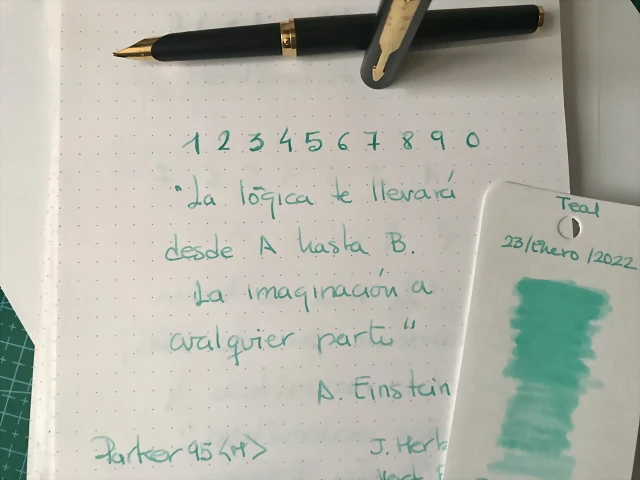 1 2 3 4 5 6 7 8 9 0
"La lógica te llevará
desde A hasta B.
La imaginación a
cualquier parte"
A. Einstein
Parker 95 <M>
J. Herb
Teal
23/Enero/2022